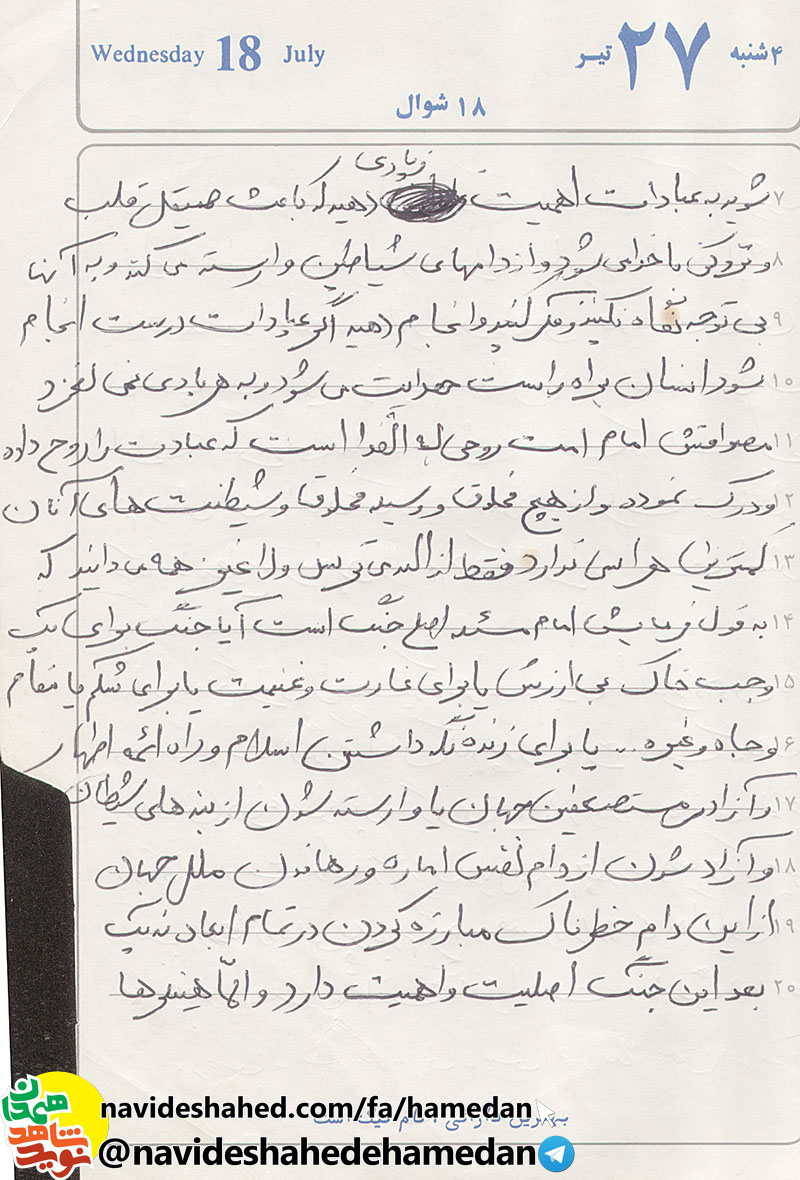 ۴شنبه ۲۷ تیر Wednesday 18 July
۱۸ شوال
زیادی
۷ شوید به عبادات اهمیت دهید که باعث صیقل قلب
۸ و نزدیکی با خدای شود و از دامهای شیاطین وارسته می کند و به آنها
۹ بی توجه نگاه نکنید و فکر کنید و انجام دهید اگر عبادات درست انجام
۱۰ شود انسان براه راست هدایت می شود و به هر بادی نمی لغزد
۱۱ مصداقش امام امت روحی له الفدا است که عبادت را روح داده
۱۲ و درک نموده و از هیچ مخلوق و وسیله مخلوق و شیطنت های آنان
۱۳ کمترین هراسی ندارد فقط از الله می ترسد ولا غیر همه می دانید که
۱۴ به قول فرمایش امام مسئله اصلی جنگ است آیا جنگ برای یک
۱۵ وجب خاک بی ارزش یا برای غارت و غنیمت یا برای شکم یا مقام
۱۶ و جاه و غیره... یا برای زنده نگه داشتن اسلام و راه ائمه اطهار
۱۷ و آزادی مستضعفین جهان یا وارسته شدن از بندهای شیطان
۱۸ و آزاد شدن از دام نفس اماره و رهاندن ملل جهان
۱۹ از این دام خطرناک مبارزه کردن در تمام ابعاد نه یک
۲۰ بعد این جنگ اصلیت و اهمیت دارد و الا
بهترین دارائی، نام نیک است
نوید شاهد همدان
navideshahed.com/fa/hamedan
@navideshahedehamedan